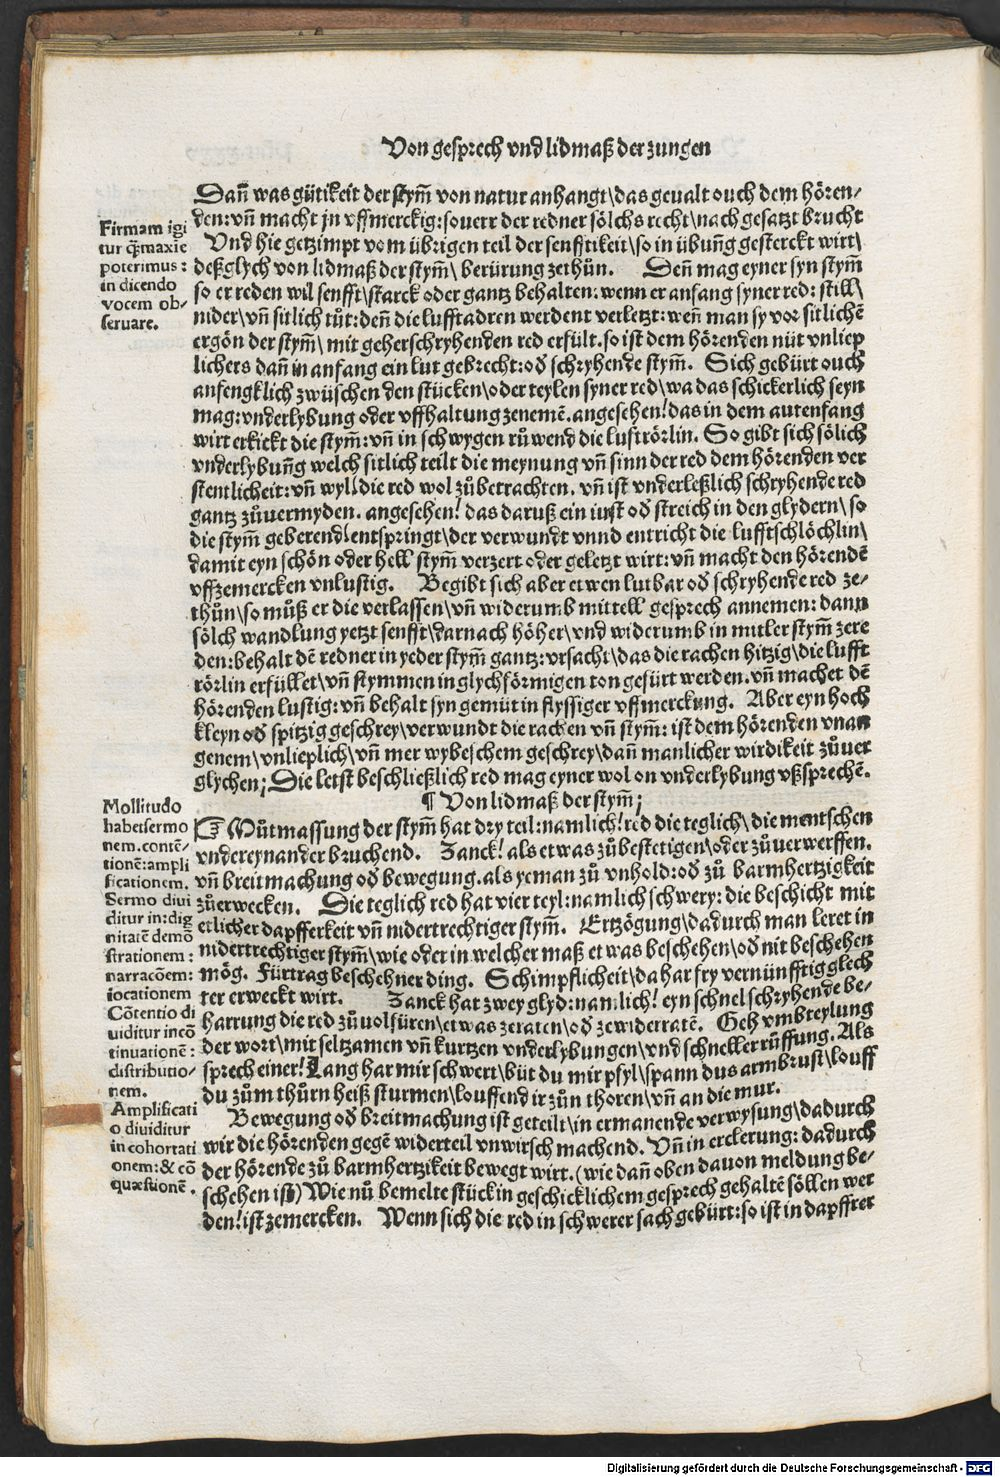 Von gesprech vnd lidmaß der zungen
Dañ was gütikeit der stym̃ von natur anhangt\das geualt ouch dem hören/
den: vñ macht jn vffmerckig: souerr der redner sölchs recht\nach gesatzt brucht
Vnd hie getzimpt vom übrigen teil der senfftikeit\so in übuñg gesterckt wirt\
deßglych von lidmaß der stym̃\ berürung zethůn. Deñ mag eyner syn stym̃
so er reden wil senfft\starck oder gantz behalten: wenn er anfang syner red: still\
nider\vñ sitlich tůt: deñ die lufftadren werdent verletzt: weñ man sy vor sitlichē
ergön der stym̃\ mit geher schryhenden red erfült. so ist dem hörenden nüt vnliep
lichers dañ in anfang ein lut gebrecht: oď schryhende stym̃. Sich gebürt ouch
anfengklich zwüschen den stücken\oder teylen syner red\wa das schickerlich seyn
mag: vnderlybung oder vffhaltung zenemē. angesehen! das in dem autenfang
wirt erkickt die stym̃: vñ in schwygen růwend die luftrörlin. So gibt sich sölich
vnderlybuñg welch sitlich teilt die meynung vñ sinn der red dem hörenden ver
stentlicheit: vñ wyl! die red wol zůbetrachten. vñ ist vnderleßlich schryhende red
gantz zůuermyden. angesehen! das daruß ein iust oď streich in den glydern\so
die stym̃ geberend! entspringt\der verwundt vnnd entricht die lufftschlöchlin\
damit eyn schön oder hell stym̃ verzert oder geletzt wirt: vñ macht den hörendē
vffzemercken vnlustig. Begibt sich aber etwen lutbar oď schryhende red ze/
thůn\so můß er die verlassen\vñ widerumb mittell gesprech annemen: dann
sölch wandlung yetzt senfft\darnach höher\vnd widerumb in mitler stym̃ zere
den: behalt dē redner in yeder stym̃ gantz: vrsacht\das die rachen hitzig\die lufft
rörlin erfüllet\vñ stymmen in glychförmigen ton gefürt werden. vñ machet dē
hörenden lustig: vñ behalt syn gemüt in flyssiger vffmerckung. Aber eyn hoch
kleyn oď spitzig geschrey\verwundt die rachen vñ stym̃: ist dem hörenden vnan
genem\vnlieplich\vñ mer wybeschem geschrey\dañ manlicher wirdikeit zůuer
glychen; Die letst beschließlich red mag eyner wol on vnderlybung vßsprechē.
¶ Von lidmaß der stym̃;
☞ Můtmassung der stym̃ hat dry teil: namlich! red die teglich\die mentschen
vndereynander bruchend. Zanck! als etwas zůbestetigen\oder zůuerwerffen.
vñ breitmachung oď bewegung. als yeman zů vnhold: oď zů barmhertzigkeit
zůerwecken. Die teglich red hat vier teyl: namlich schwery: die beschicht mit
etlicher dapfferkeit vñ nidertrechtiger stym̃. Ertzögung\dadurch man leret in
nidertrechtiger stym̃\wie oder in welcher maß etwas beschehen\oď nit beschehen
mög. Fürtrag beschehner ding. Schimpflicheit\da har fry vernünfftig glech
ter erweckt wirt. Zanck hat zwey glyd: namlich! eyn schnel schryhende be/
harrung die red zůuolfüren\etwas zeraten\oď zewiderratē. Geh vmbteylung
der wort\mit seltzamen vñ kurtzen vnderlybungen\vnd schneller rüffung. Als
sprech einer! Lang har mir schwert\büt du mir psyl\spann dus armbrust\louff
du zům thůrn heiß sturmen\louffend ir zůn thoren\vñ an die mur.
Bewegung oď breitmachung ist geteilt\in ermanende verwysung\dadurch
wir die hörenden gegē widerteil vnwirsch machend. Vñ in erclerung: dadurch
der hörende zů barmhertzikeit bewegt wirt. (wie dañ oben dauon meldung be/
schehen ist) Wie nů bemelte stück in geschicklichem gesprech gehaltē söllen wer
den! ist zemercken. Wenn sich die red in schwerer sach gebürt: so ist in dapffrer
Firmam igi
tur q̄maxie
poterimus:
in dicendo
vocem ob/
seruare.
Mollitudo
habet sermo
nem. contē/
tionē: ampli
ficationem.
Sermo diui
ditur in: dig
nitatē demō
strationem:
narracōem:
iocationem
Cōtentio di
uiditur in cō
tinuationē:
distributio/
nem.
Amplificati
o diuiditur
in cohortati
onem: & cō
quæstionē.
Digitalisierung gefördert durch die Deutsche Forschungsgemeinschaft - DFG